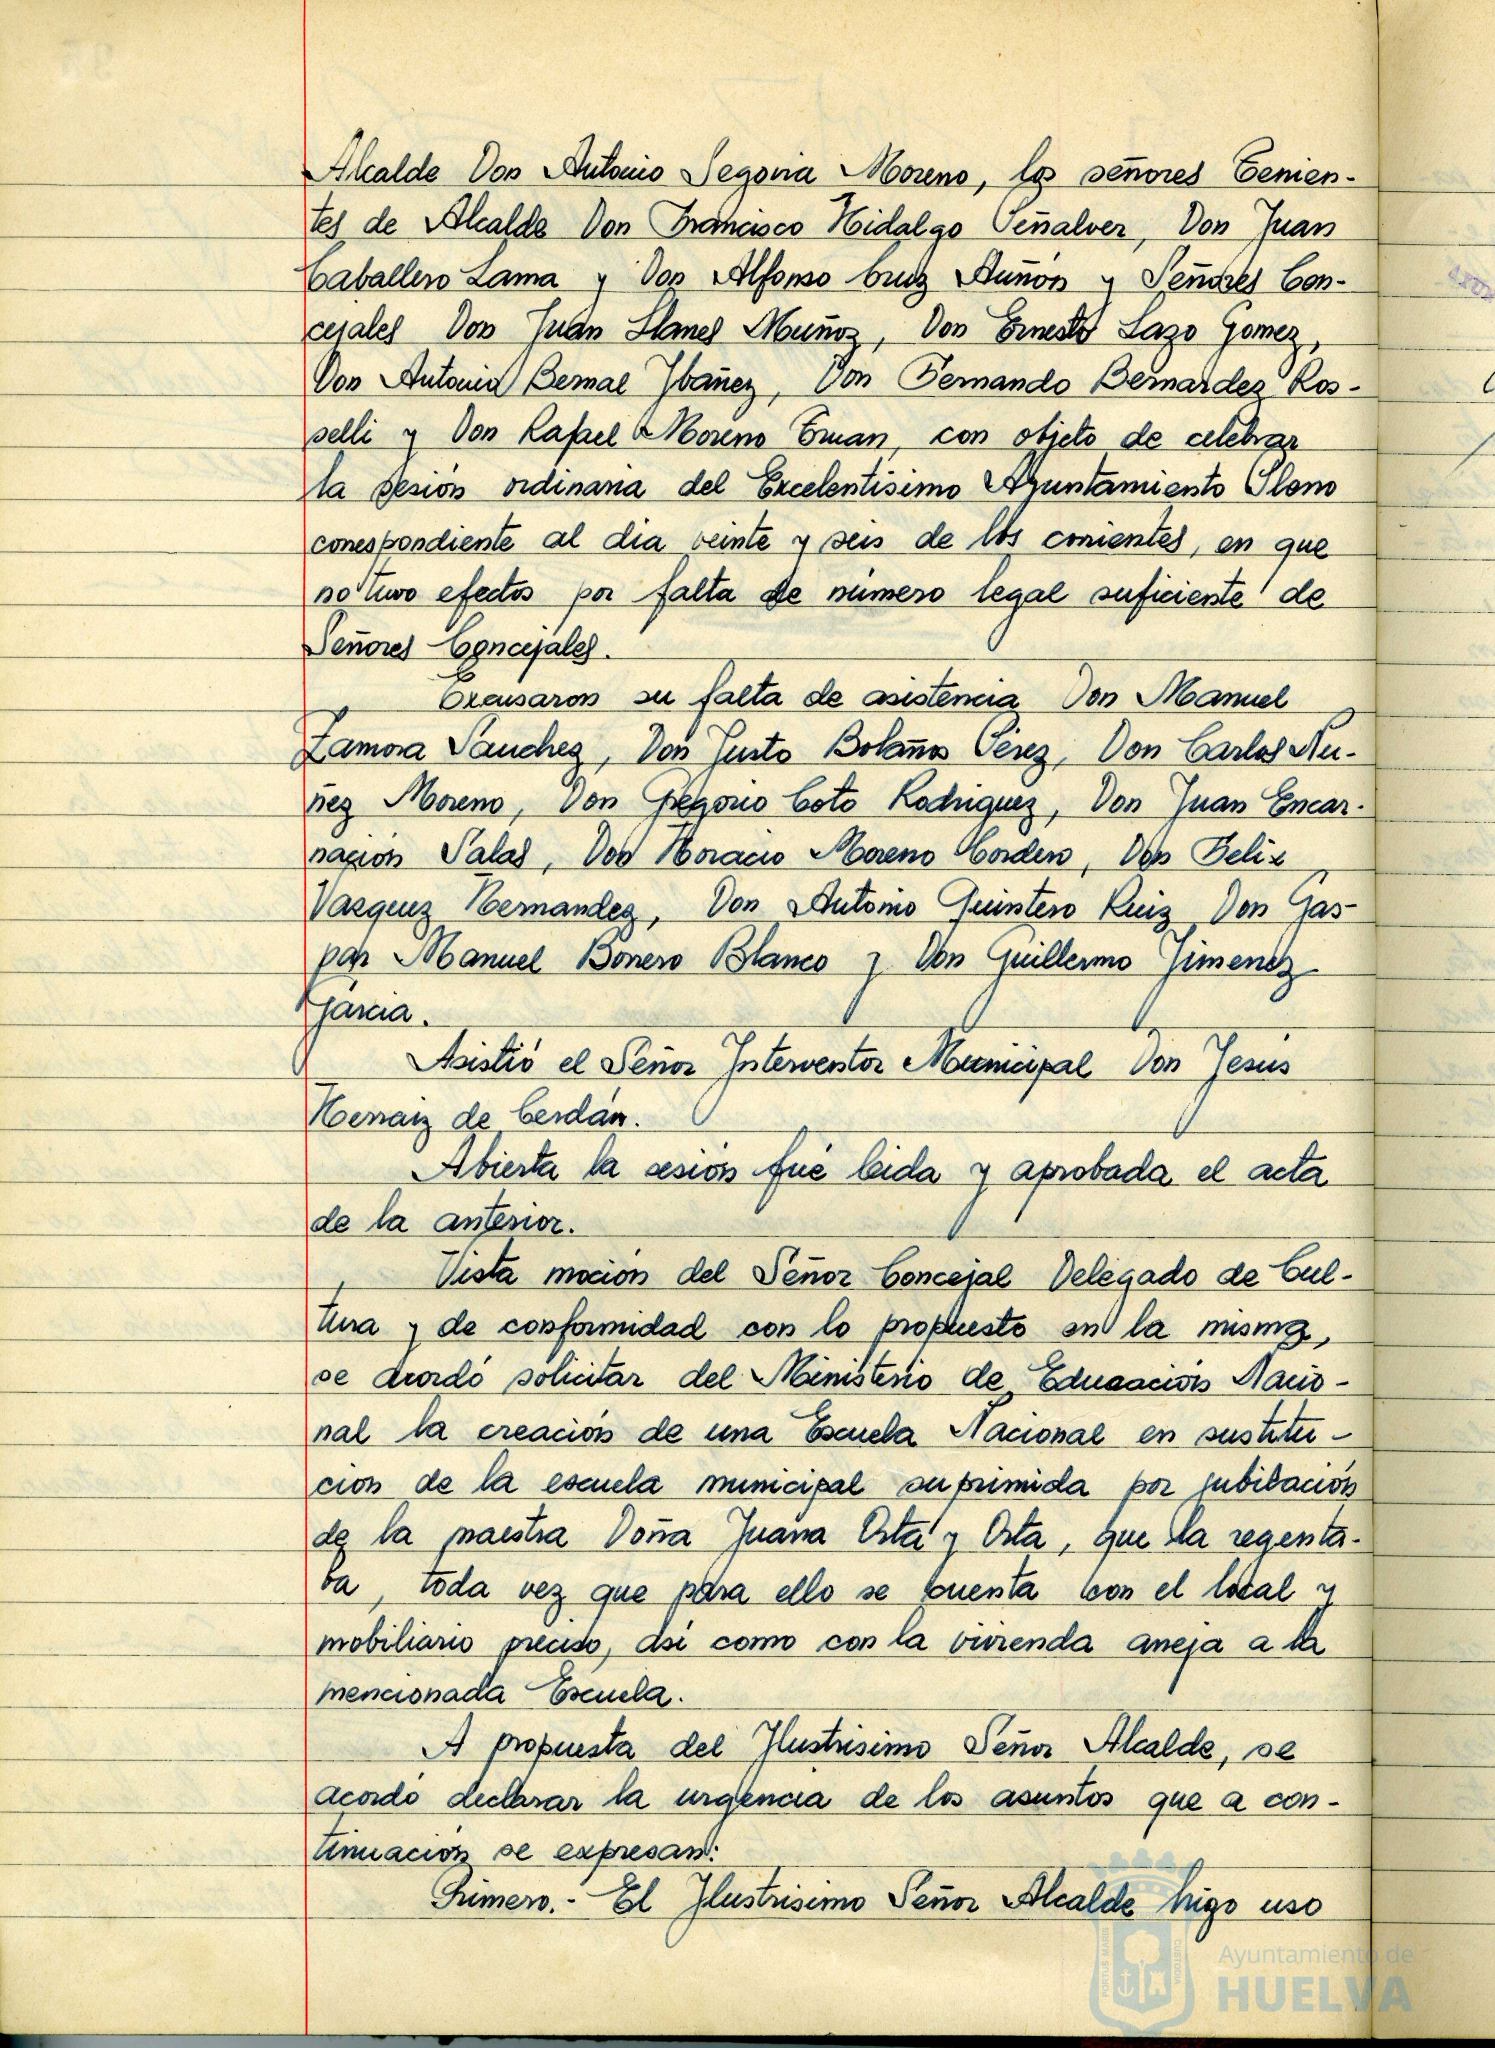 Alcalde Don Antonio Segovia Moreno, los señores Tenien-
tes de Alcalde Don Francisco Hidalgo Peñalver, Don Juan
Caballero Lama y Don Alfonso Cruz Auñón y Señores Con-
cejales Don Juan Llanes Muñoz, Don Ernesto Lazo Gomez,
Don Antonio Bernal Ybañez, Don Fernando Bernardez Ros-
selli y Don Rafael Moreno Eman, con objeto de celebrar
la sesión ordinaria del Excelentísimo Ayuntamiento Pleno
correspondiente al dia veinte y seis de los corrientes, en que
no tuvo efectos por falta de número legal suficiente de
Señores Concejales.
Excusaron su falta de asistencia Don Manuel
Zamora Sanchez, Don Justo Bolaños Pérez, Don Carlos Nu-
ñez Moreno, Don Gregorio Coto Rodriguez, Don Juan Encar-
nación Salas, Don Horacio Moreno Cordero, Don Felix
Vazquez Hernandez, Don Antonio Quintero Ruiz Don Gas-
par Manuel Borrero Blanco y Don Guillermo Jimenez
Garcia.
Asistió el Señor Interventor Municipal Don Jesús
Herraiz de Cerdán.
Abierta la sesión fué leida y aprobada el acta
de la anterior.
Vista moción del Señor Concejal Delegado de Cul-
tura y de conformidad con lo propuesto en la misma,
se acordó solicitar del Ministerio de Educación Nacio-
nal la creación de una Escuela Nacional en sustitu-
cion de la escuela municipal suprimida por jubilación
de la maestra Doña Juana Orta y Orta, que la regenta-
ba, toda vez que para ello se cuenta con el local y
mobiliario preciso, asi como con la vivienda aneja a la
mencionada Escuela.
A propuesta del Ylustrisimo Señor Alcalde, se
acordó declarar la urgencia de los asuntos que a con-
tinuación se expresan:
Primero.- El Ylustrisimo Señor Alcalde hizo uso
Ayuntamiento de
HUELVA